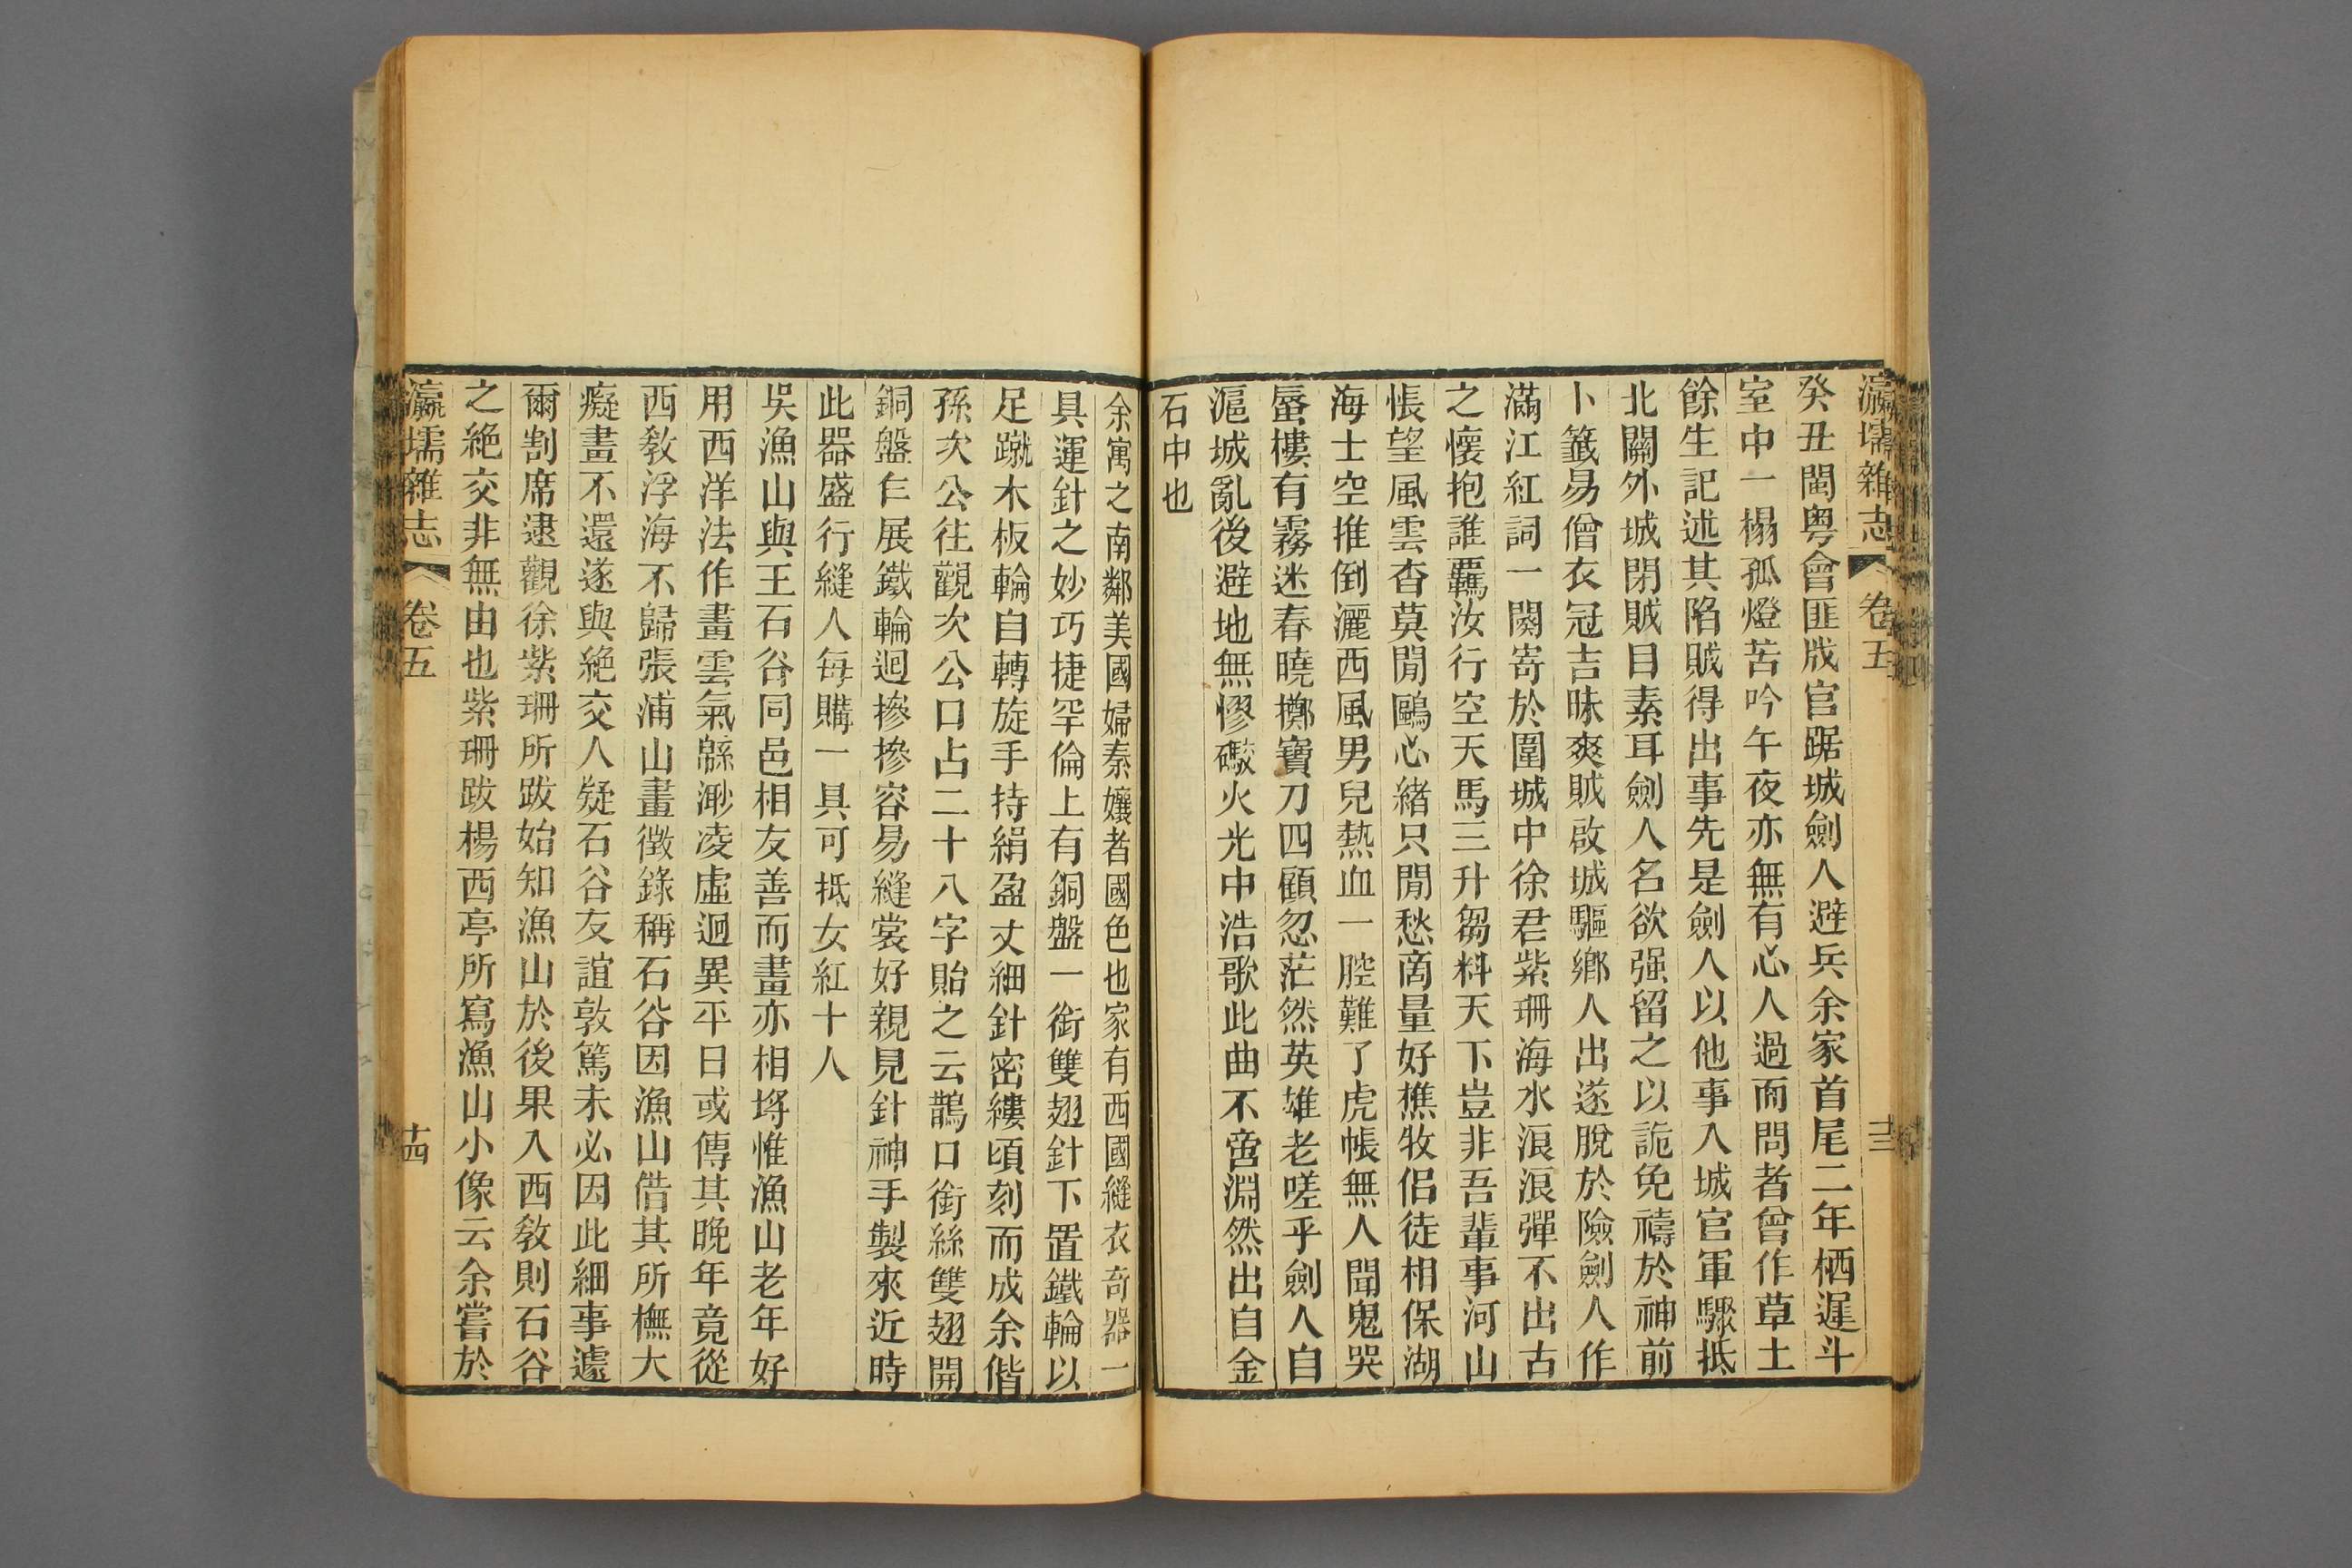 瀛壖雜志 卷五 十三
癸丑閩粤會匪戕官踞城劍人避兵余家首尾二年栖遲斗
室中一榻孤燈苦吟午夜亦無有心人過而問者曾作草土
餘生記述其陷賊得出事先是劍人以他事入城官軍驟抵
北關外城閉賊目素耳劍人名欲强留之以詭免禱於神前
卜籤易僧衣冠吉昧爽賊啟城驅鄉人出遂脫於險劍人作
滿江紅詞一闋寄於圍城中徐君紫珊海水浪浪彈不出古
之懷抱誰羈汝行空天馬三升芻料天下豈非吾輩事河山
悵望風雲杳莫閒鷗心緒只閒愁啇量好樵牧侣徒相保湖
海士空推倒灑西風男兒熱血一腔難了虎帳無人聞鬼哭
蜃樓有霧迷春曉擲寶刀四顧忽茫然英雄老嗟乎劍人自
滬城亂後避地無憀礮火光中浩歌此曲不啻淵然出自金
石中也
余寓之南鄰美國婦秦孃者國色也家有西國縫衣奇器一
具運針之妙巧捷罕倫上有銅盤一銜雙翅針下置鐵輪以
足蹴木板輪自轉旋手持絹盈丈細針密縷頃刻而成余偕
孫次公往觀次公口占二十八字貽之云鵲口銜絲雙翅開
銅盤乍展鐵輪迴摻摻容易縫裳好親見針神手製來近時
此器盛行縫人每購一具可抵女紅十人
吳漁山與王石谷同邑相友善而畫亦相埒惟漁山老年好
用西洋法作畫雲氣緜渺凌虛迥異平日或傳其晚年竟從
西敎浮海不歸張浦山畫徵錄稱石谷因漁山借其所橅大
癡畫不還遂與絶交人疑石谷友誼敦篤未必因此細事遽
爾割席逮觀徐紫珊所跋始知漁山於後果入西敎則石谷
之絶交非無由也紫珊跋楊西亭所寫漁山小像云余嘗於
瀛壖雜志 卷五 十四